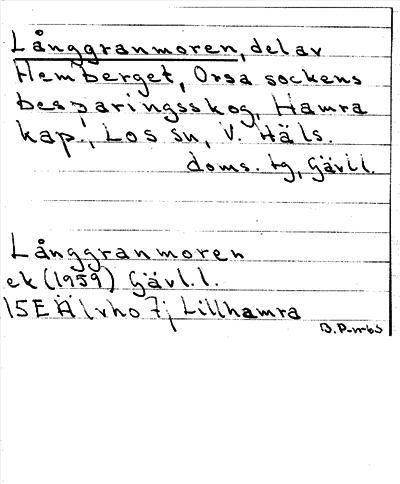 Långgranmoren, del av
Hemberget, Orsa sockens
besparingsskog, Hamra
kap., Los sn, V. Häls.
doms. tg, Gävl l.
Långgranmoren
ek (1959) Gävl. l.
15E Älvho 7j Lillhamra